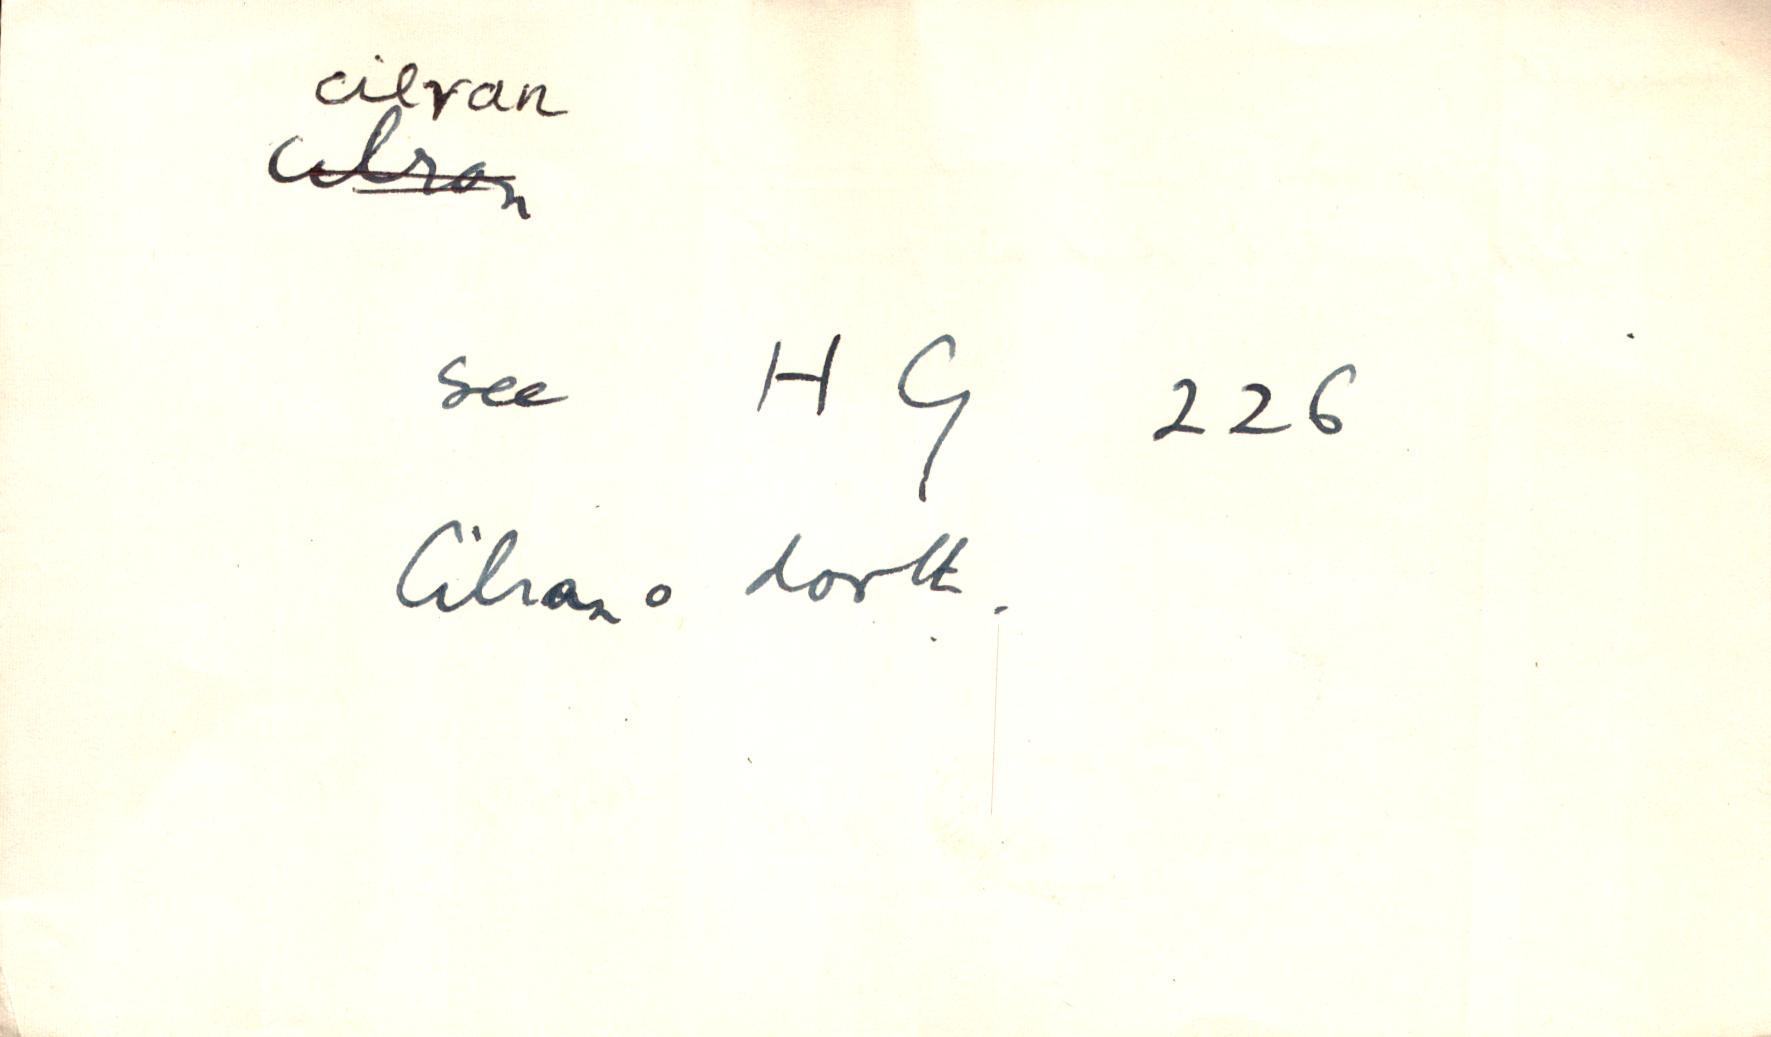 cilran
Cilran
see H G 226
Cilran o dorth.